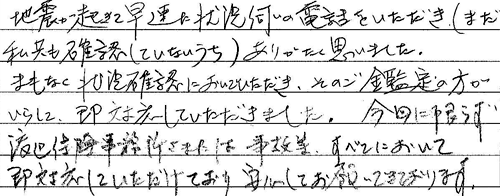 地震が起きて早速に状況伺いの電話をいただき(まだ
私共も確認していないうち)ありがたく思いました。
まもなく状況確認においでいただき、そのご鑑定の方が
いらして、即対応していただきました。今回に限らず
すべてにおいて
即対応していただけており安心してお願いできております。